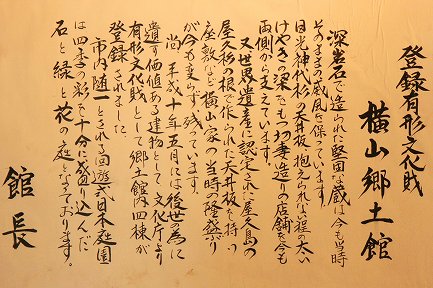 登録有形文化財
横山郷土館
深岩石で造られた堅固な蔵は今も当時
そのままの威風を保っています。
日光神代杉の天井板、抱えられない程の太い
けやきの梁をもつ切妻造りの店舗を今も
両側から支えています。
又世界遺産に認定された屋久島の
屋久杉の根で作られた天井板を持つ
座敷など横山家の当時の隆盛ぶり
が今も変らず残っています。
尚、平成十年五月には後世の為に
遺す価値ある建物として文化庁より
有形文化財として郷土館内四棟が
登録されました。
市内随一とされる回遊式日本庭園
は四季の彩を十分に盛り込んだ
石と緑と花の庭となっております。
館長